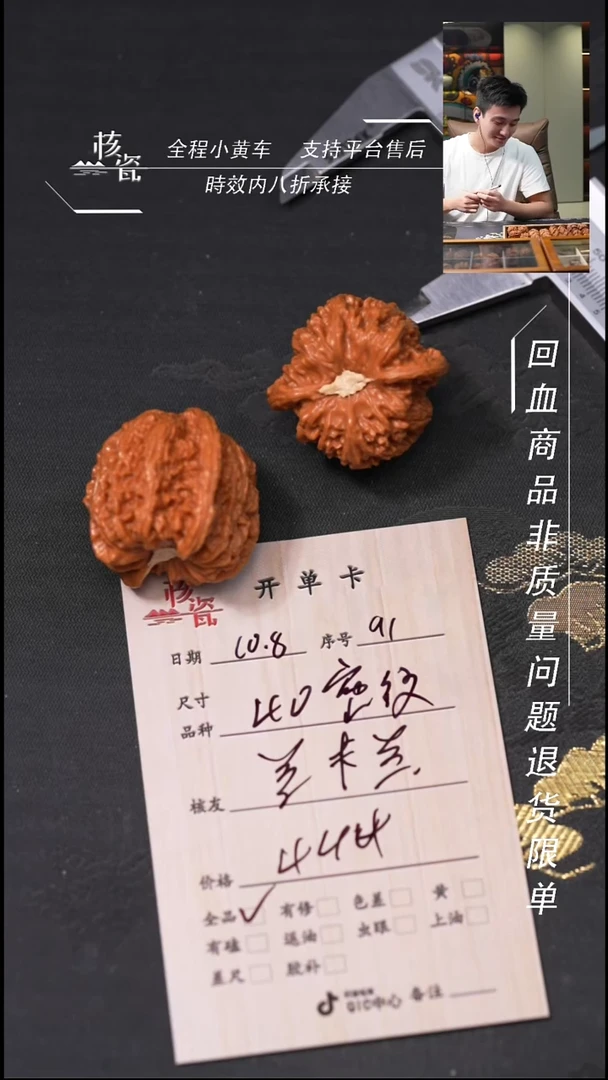 核瓷
全程小黄车 支持平台售后
時效内八折承接
回血商品非质量问题退货限单
核瓷
开单卡
日期 10.8 序号 91
尺寸
品种 40密纹
核友 兰卡兰
价格 444
全品 ✓ 有修 色差 黄
有磕 返油 虫眼 上油
差尺 胶补
QIC中心 备注